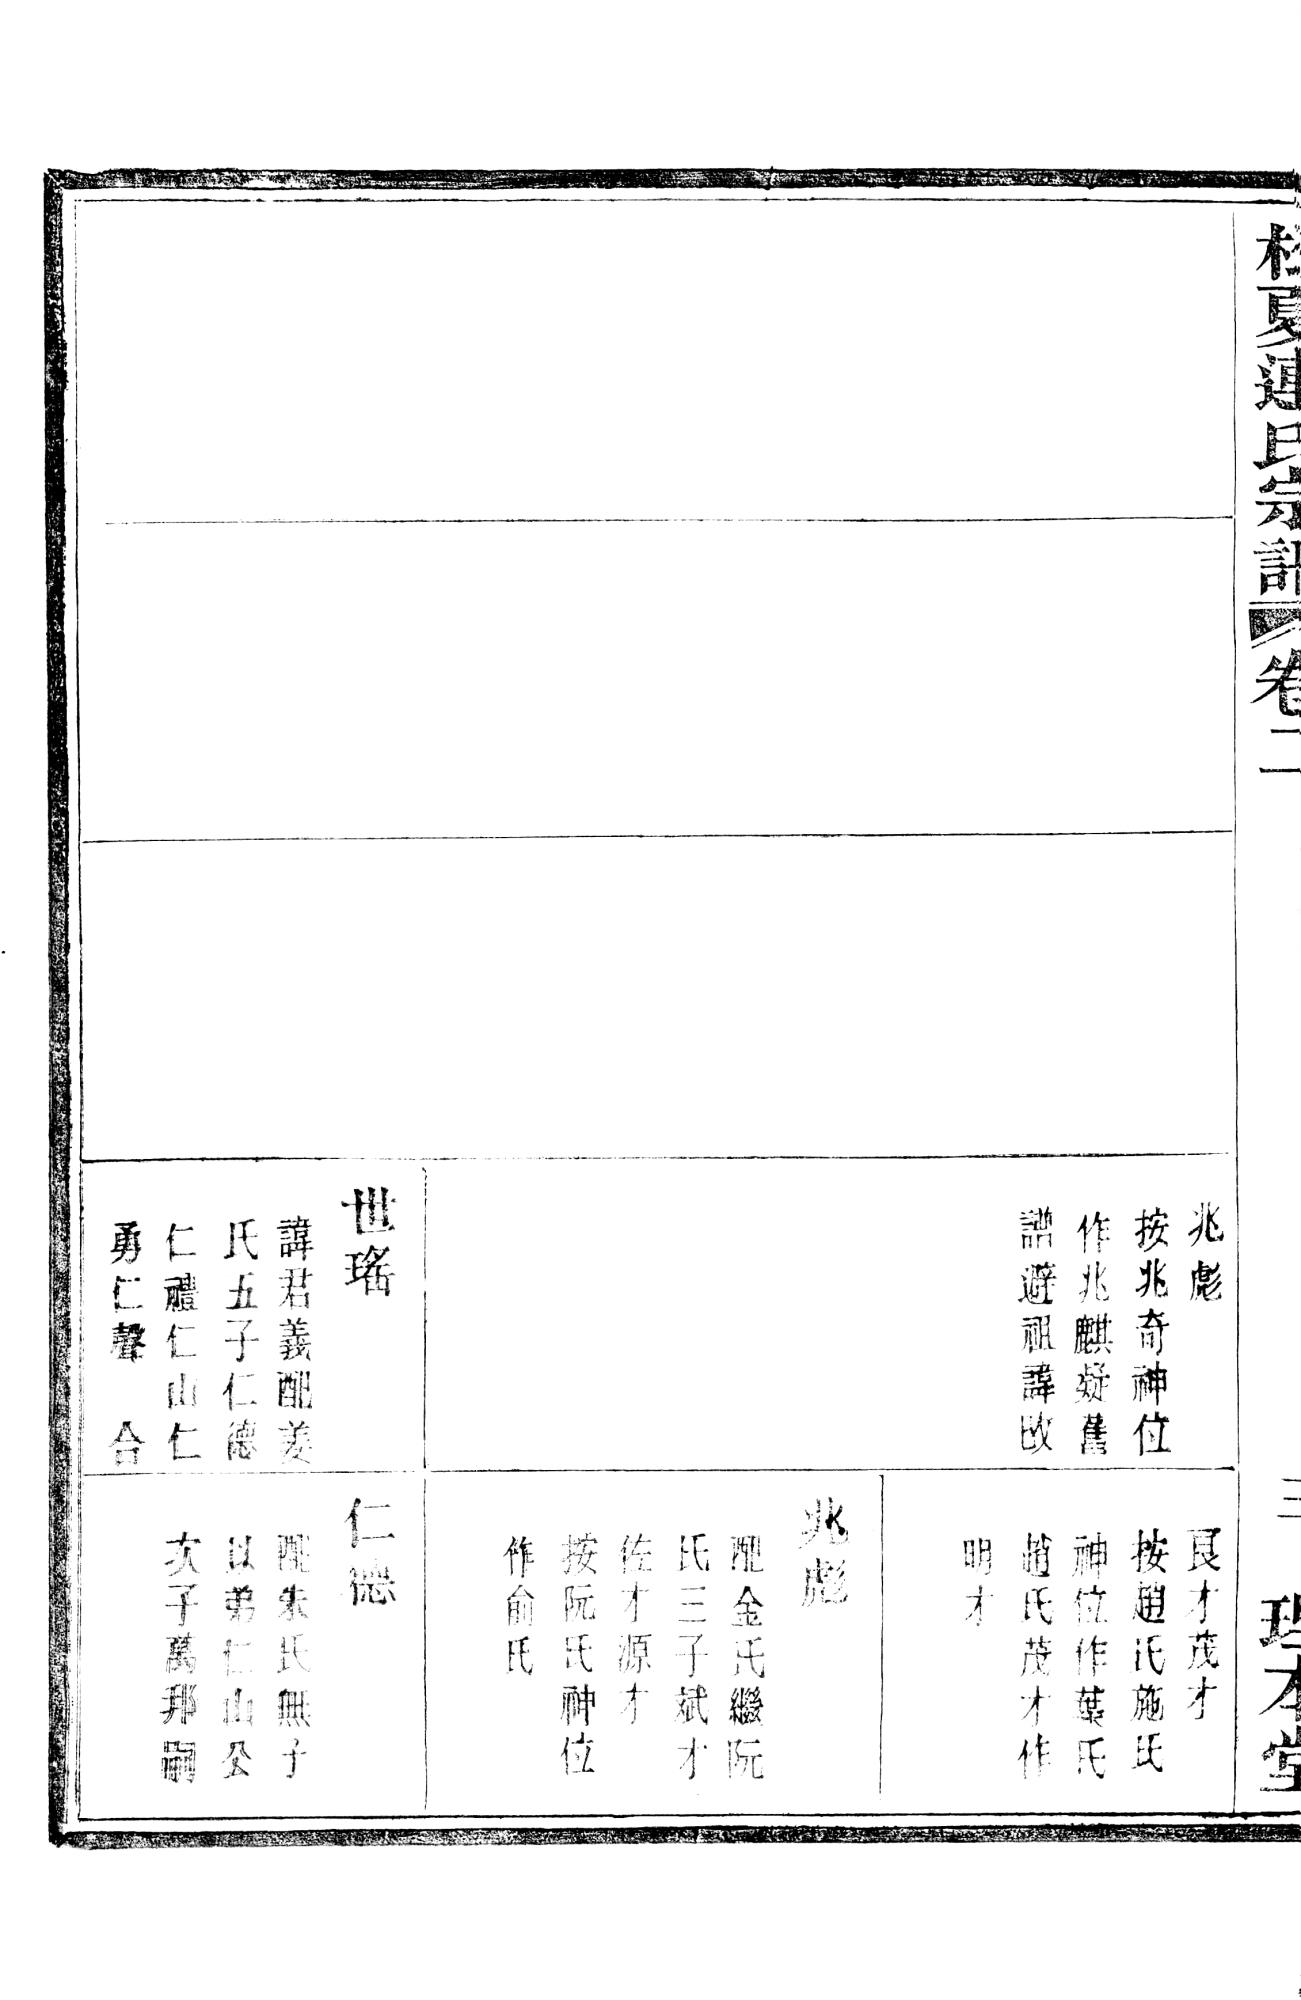 桂夏連氏宗譜
卷二
三
理本堂
兆彪
按兆奇神位
作兆麒疑舊
譜避祖諱改
世瑤
諱君義配姜
氏五子仁德
仁禮仁山仁
勇仁聲 合
艮才茂才
按趙氏施氏
神位作葉氏
趙氏茂才作
明才
兆彪
配金氏繼阮
氏三子斌才
佐才源才
按阮氏神位
作俞氏
仁德
配朱氏無子
以弟仁山公
次子萬邦嗣